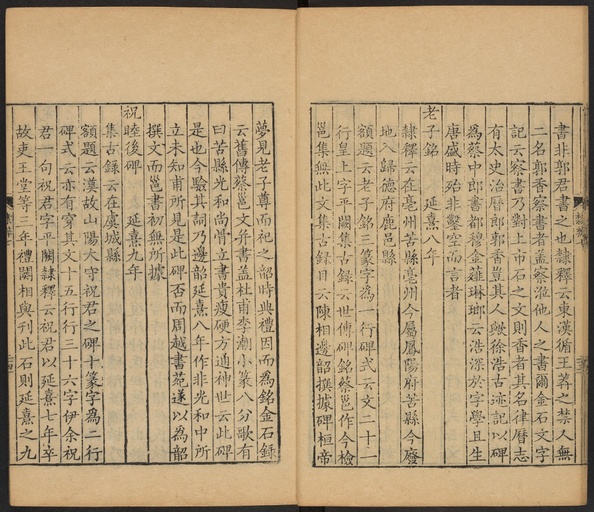 書非郭君書之也隸釋云東漢循王莽之禁人無
二名郭香察書者蓋察涖他人之書爾金石文字
記云察書乃對上市石之文則香者其名律曆志
有太史治曆郎郭香豈其人與徐浩古迹記以碑
為蔡中郎書都穆金薤琳瑯云浩深於字學且生
唐盛時殆非鑿空而言者
老子銘 延熹八年
隸釋云在亳州苦縣亳州今屬鳳陽府苦縣今廢
地入歸德府鹿邑縣
額題云老子銘三篆字為一行碑式云文二十一
行皇上字平闕集古錄云世傳碑銘蔡邕作今檢
邕集無此文集古錄目云陳相邊韶撰據碑桓帝
夢見老子尊而祀之韶時典禮因而為銘金石錄
云舊傳蔡邕文并書蓋杜甫李潮小篆八分歌有
曰苦縣光和尚骨立書貴瘦硬方通神世云此碑
是也今驗其詞乃邊韶延熹八年作非光和中所
立未知甫所見是此碑否而周越書苑遂以為韶
撰文而邕書初無所據
祝睦後碑 延熹九年
集古錄云在虞城縣
額題云漢故山陽太守祝君之碑十篆字為二行
碑式云亦有穿其文十五行行三十六字伊余祝
君一句祝君字平闕隸釋云祝君以延熹七年卒
故吏王堂等三年禮闋相與刊此石則延熹之九